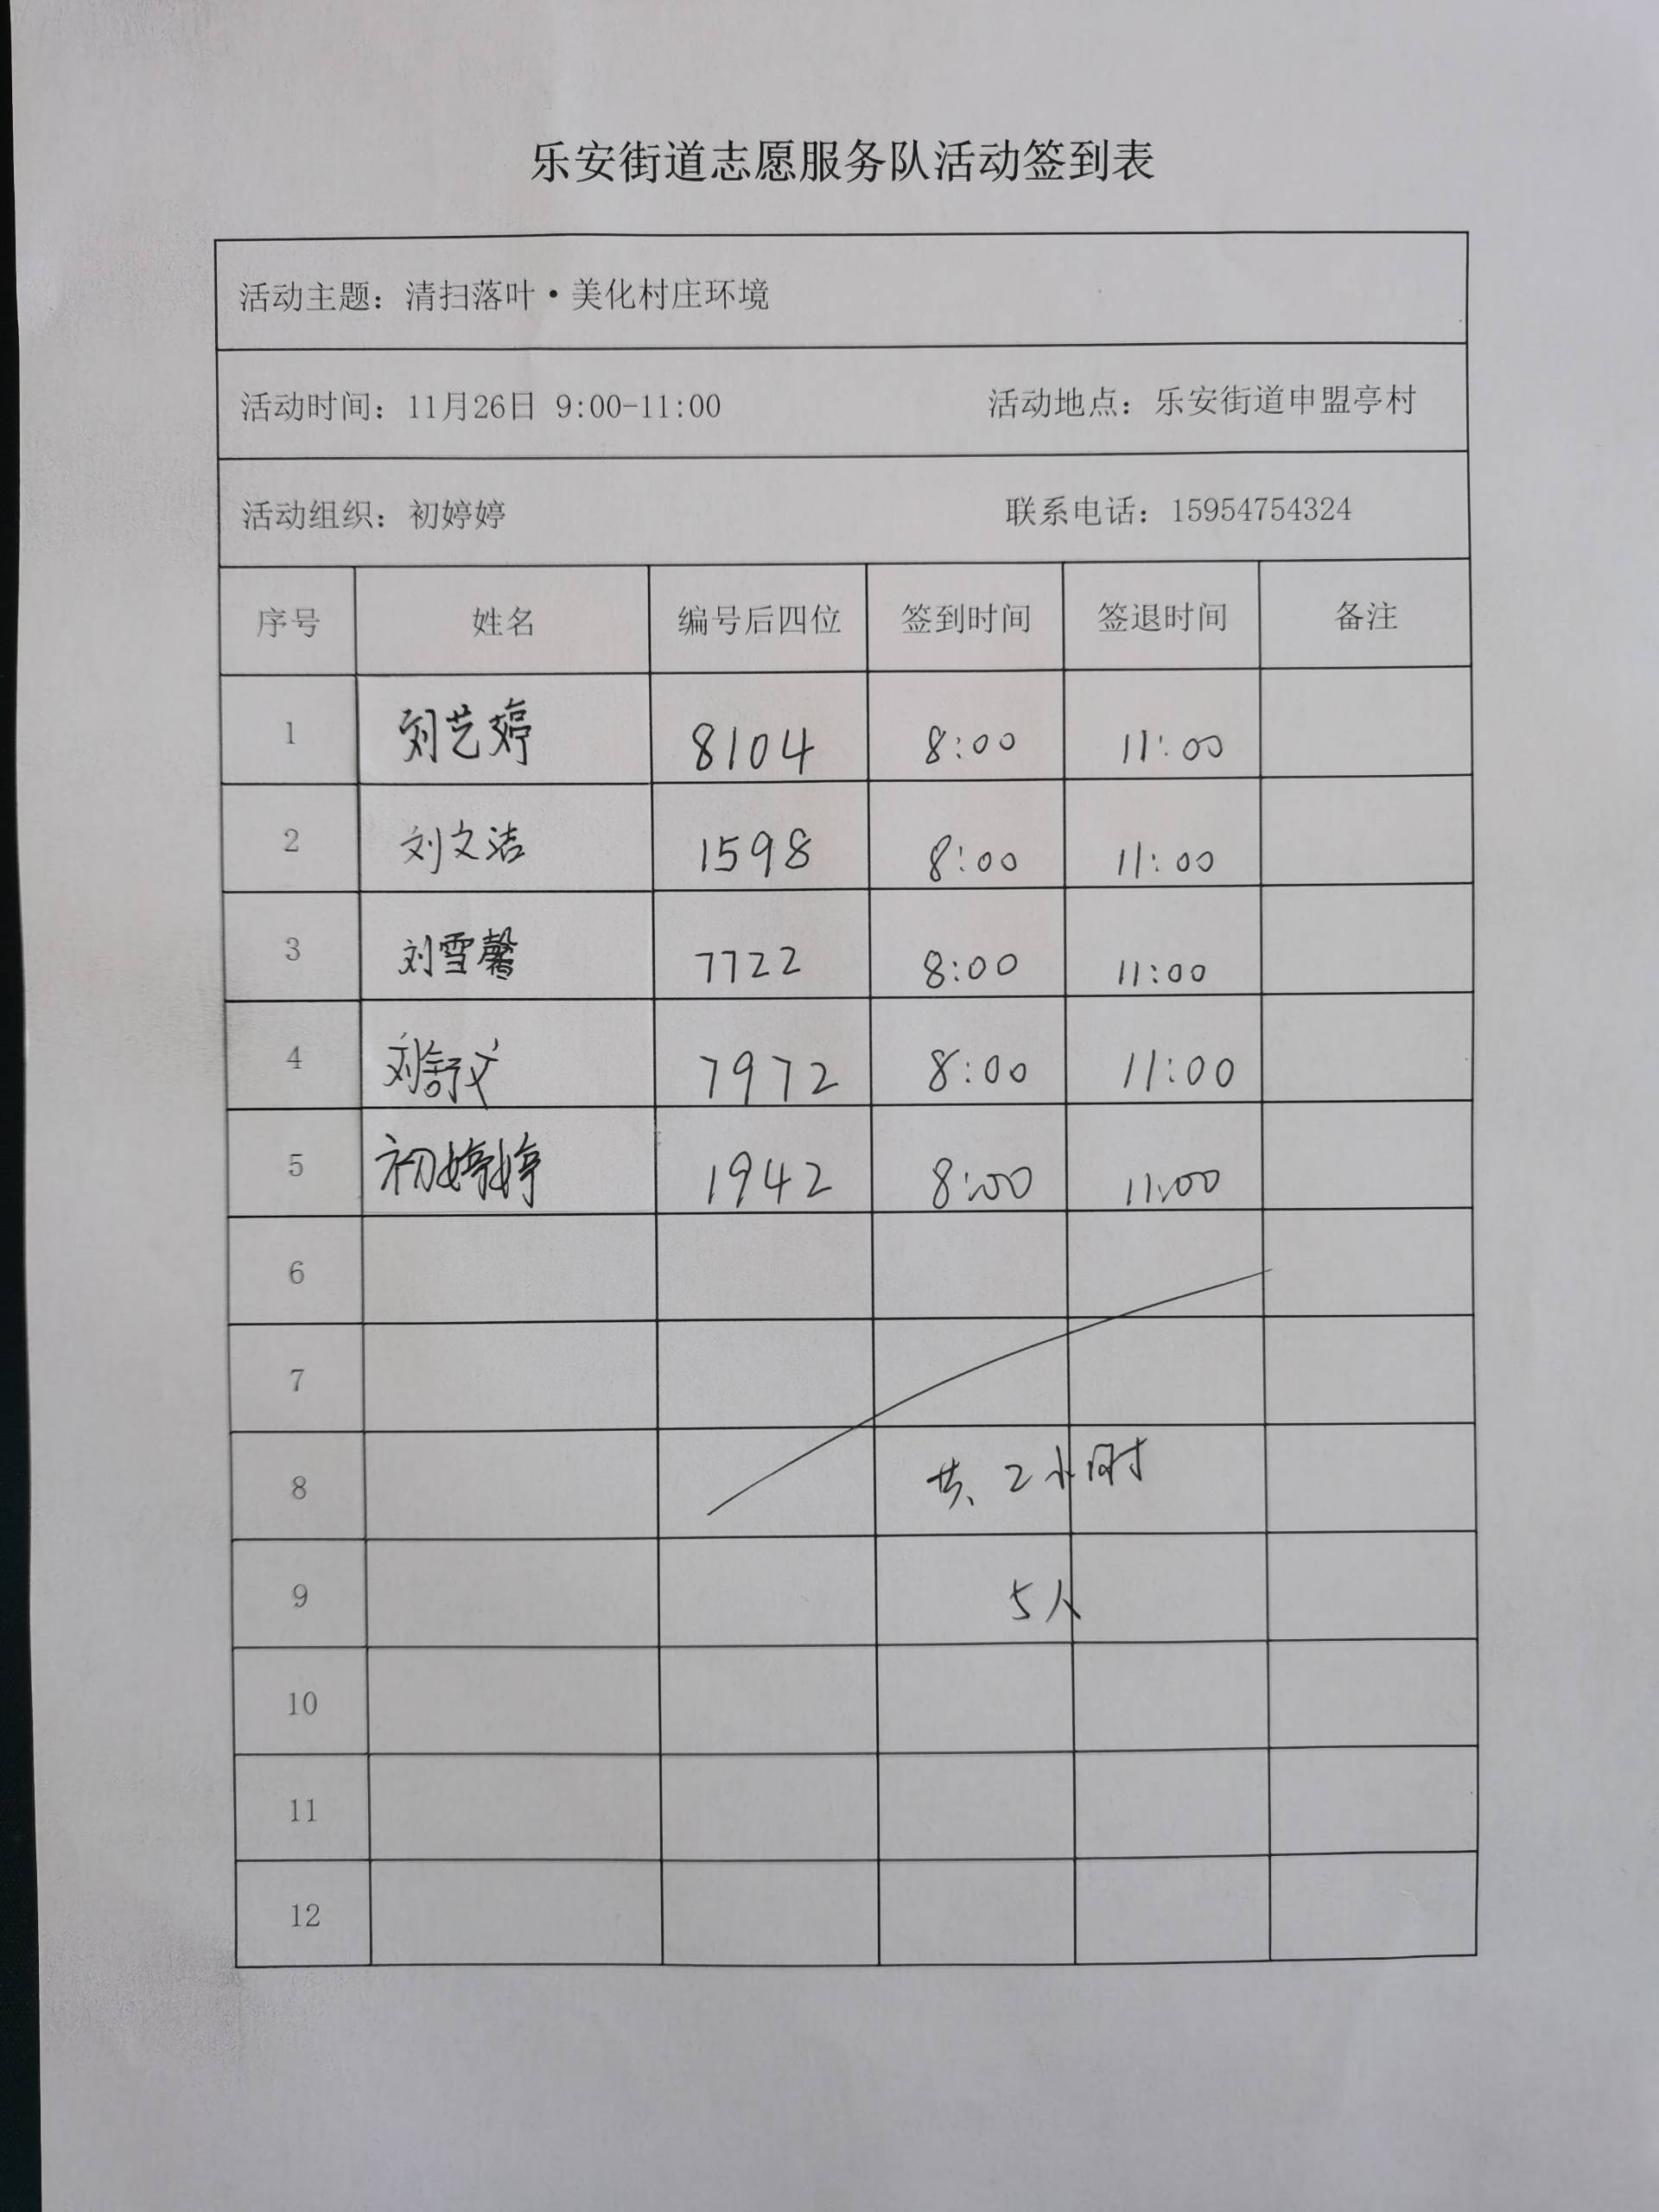 乐安街道志愿服务队活动签到表
活动主题：清扫落叶·美化村庄环境
活动时间：11月26日 9:00-11:00 活动地点：乐安街道申盟亭村
活动组织：初婷婷 联系电话：15954754324
序号 姓名 编号后四位 签到时间 签退时间 备注
1 刘艺婷 8104 8:00 11:00
2 刘文洁 1598 8:00 11:00
3 刘雪馨 7722 8:00 11:00
4 刘舒文 7972 8:00 11:00
5 初婷婷 1942 8:00 11:00
6
7
8 共2小时
9 5人
10
11
12